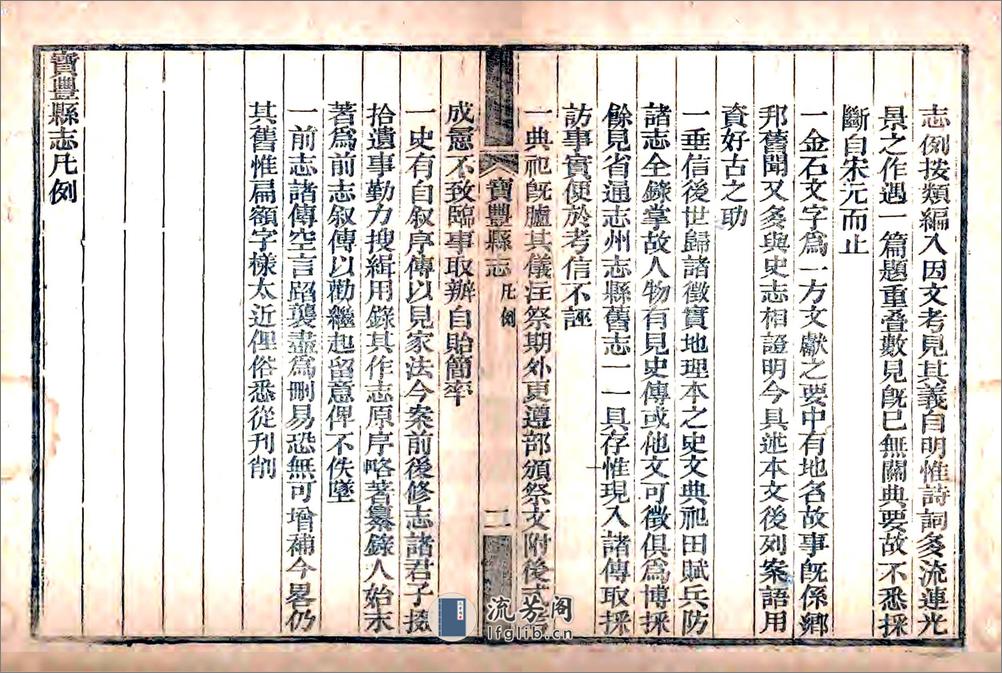 志例按類編入因文考見其義自明惟詩詞多流連光
景之作遇一篇題重叠數見旣已無關典要故不悉採
斷自宋元而止
一金石文字爲一方文獻之要中有地名故事旣係鄉
邦舊聞又多與史志相證明今具述本文後列案語用
資好古之助
一垂信後世歸諸徵實地理本之史文典祀田賦兵防
諸志全錄掌故人物有見史傳或他文可徵俱爲博採
餘見省通志州志縣舊志一一具存惟現入諸傳取採
訪事實便於考信不誣
一典祀旣臚其儀注祭期外更遵部頒祭文附後
寶豐縣志
凡例
二
成憲不致臨事取辦自貽簡率
一史有自叙序傳以見家法今案前後修志諸君子
拾遺事勤力搜緝用錄其作志原序略著纂錄人始末
著爲前志叙傳以勸繼起留意俾不佚墜
一前志諸傳空言蹈襲盡爲刪易恐無可增補今畧仍
其舊惟扁額字樣太近俚俗悉從刋削
寶豐縣志凡例
流芳閣
lfglib.cn